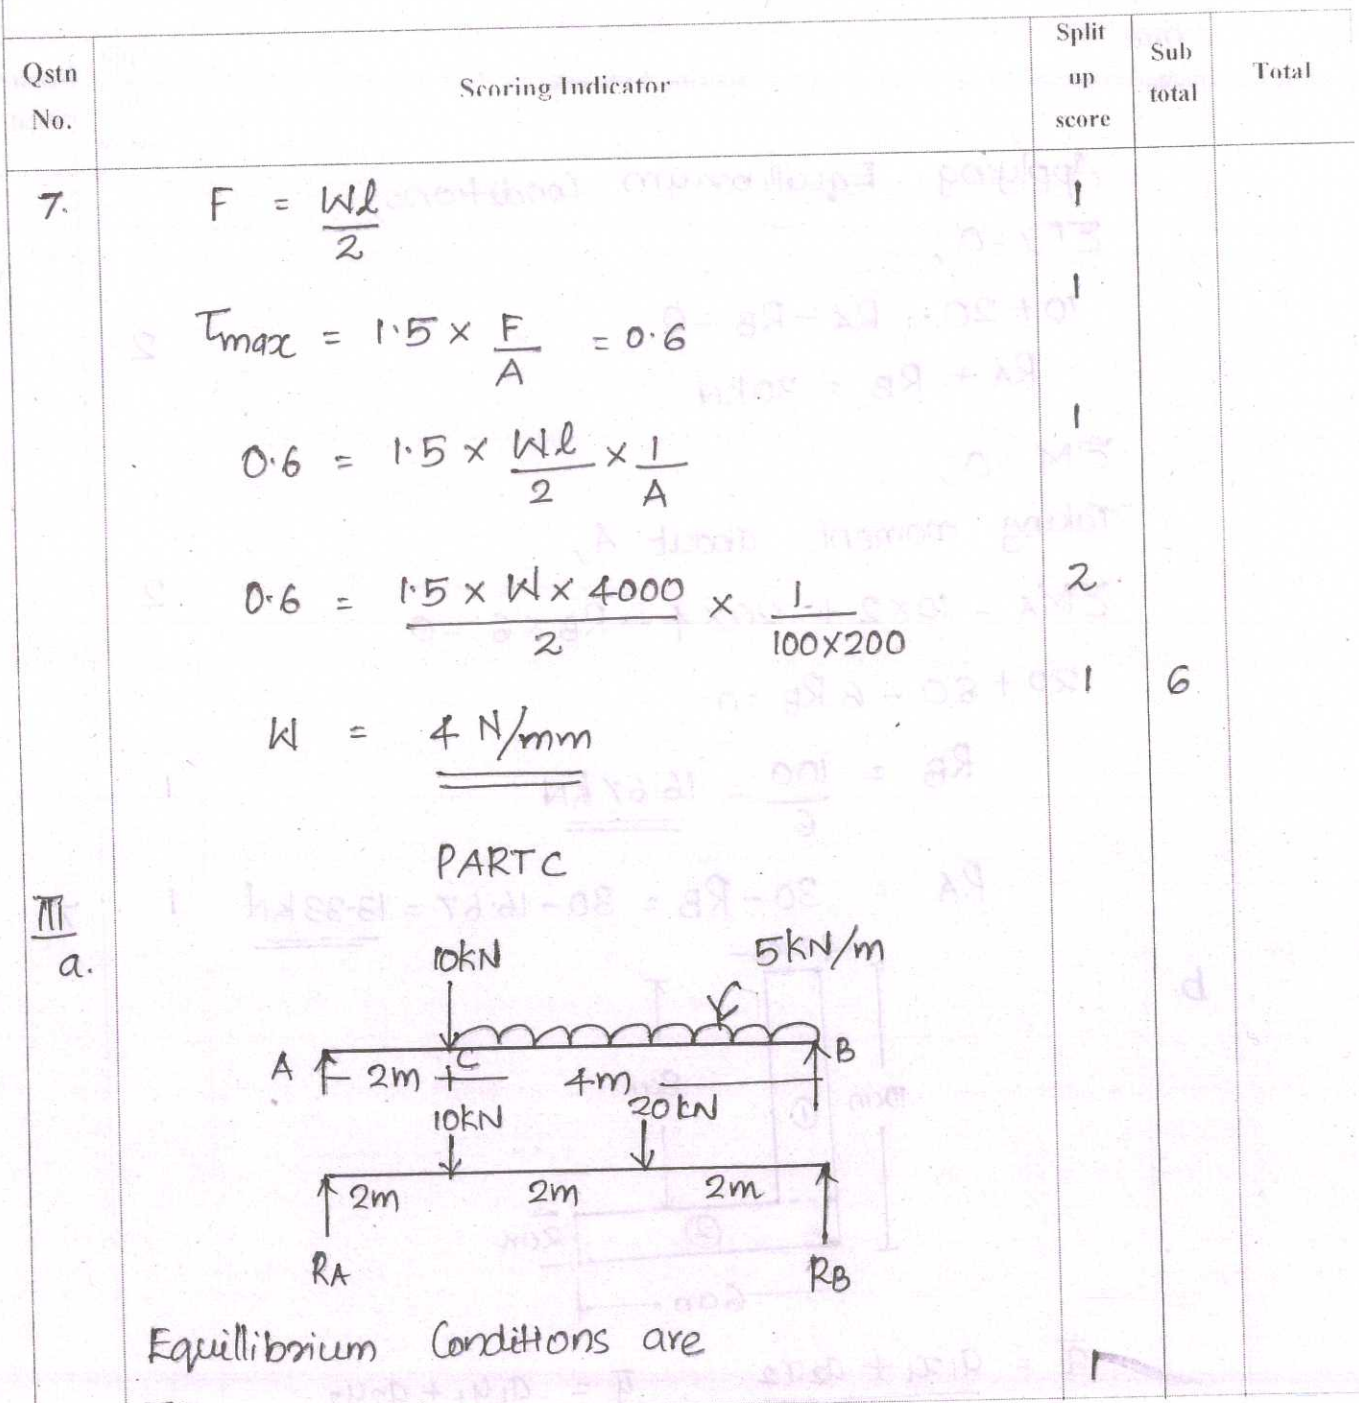 Qstn No.
Scoring Indicator
Split up score
Sub total
Total
7.
F = Wl/2
1
τmax = 1.5 × F/A = 0.6
1
0.6 = 1.5 × Wl/2 × 1/A
1
0.6 = 1.5 × W × 4000/2 × 1/100×200
2
W = 4 N/mm
1
6
PART C
III
a.
10kN
5kN/m
A
C
B
2m
4m
10kN
20kN
2m
2m
2m
RA
RB
Equillibrium Conditions are
1